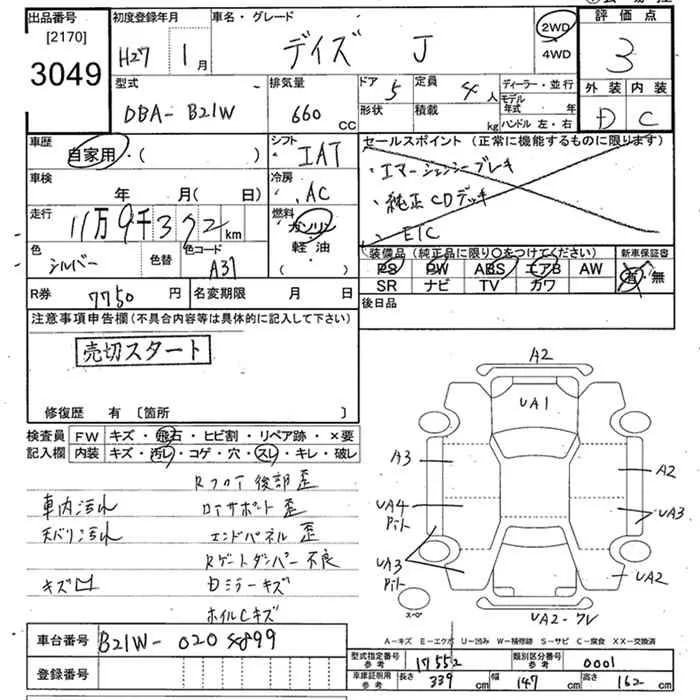 出品番号 初度登録年月 車名・グレード 評価点
[2170]
3049
H27 1月 デイズ J 2WD 4WD 3
型式 排気量 ドア 5 定員 4人 ディーラー・並行 外装 内装
DBA-B21W 660 CC 形状 積載 kg モデル年式 年 ハンドル 左・右 D C
車歴 シフト セールスポイント (正常に機能するものに限ります)
自家用・( ) IAT ・エマージェンシーブレーキ
車検 冷房 ・純正CDデッキ
年 月(日) AC
走行 11万9千372km 燃料 ガソリン 軽油 ( ) ・ETC
色 シルバー 色替 色コード A31
装備品 (純正品に限り○をつけてください) 新車保証書
PS PW ABS エアB AW 有・無
SR ナビ TV カワ
R券 7750円 名変期限 月 日 後日品
注意事項申告欄(不具合内容等は具体的に記入して下さい)
売切スタート
修復歴 有 [箇所 ]
検査員 FW キズ・飛石・ヒビ割・リペア跡・×要
記入欄 内装 キズ・汚レ・コゲ・穴・スレ・キレ・破レ
Rフロア後部歪
車内汚れ ロアサポート歪
天バリ汚れ エンドパネル歪
Rゲートダンパー不良
キズ凹 Dミラーキズ
ホイルCキズ
A2
UA1
A3 A2
UA4 UA3
UA3 UA2
スペア
UA2-7V
A-キズ E-エクボ U-凹み W-補修跡 S-サビ C-腐食 XX-交換済
車台番号 B21W-0205899
登録番号
型式指定番号 参考 17552 類別区分番号 参考 0001
車庫証明用 参考 長さ 339 cm 幅 147 cm 高さ 162 cm